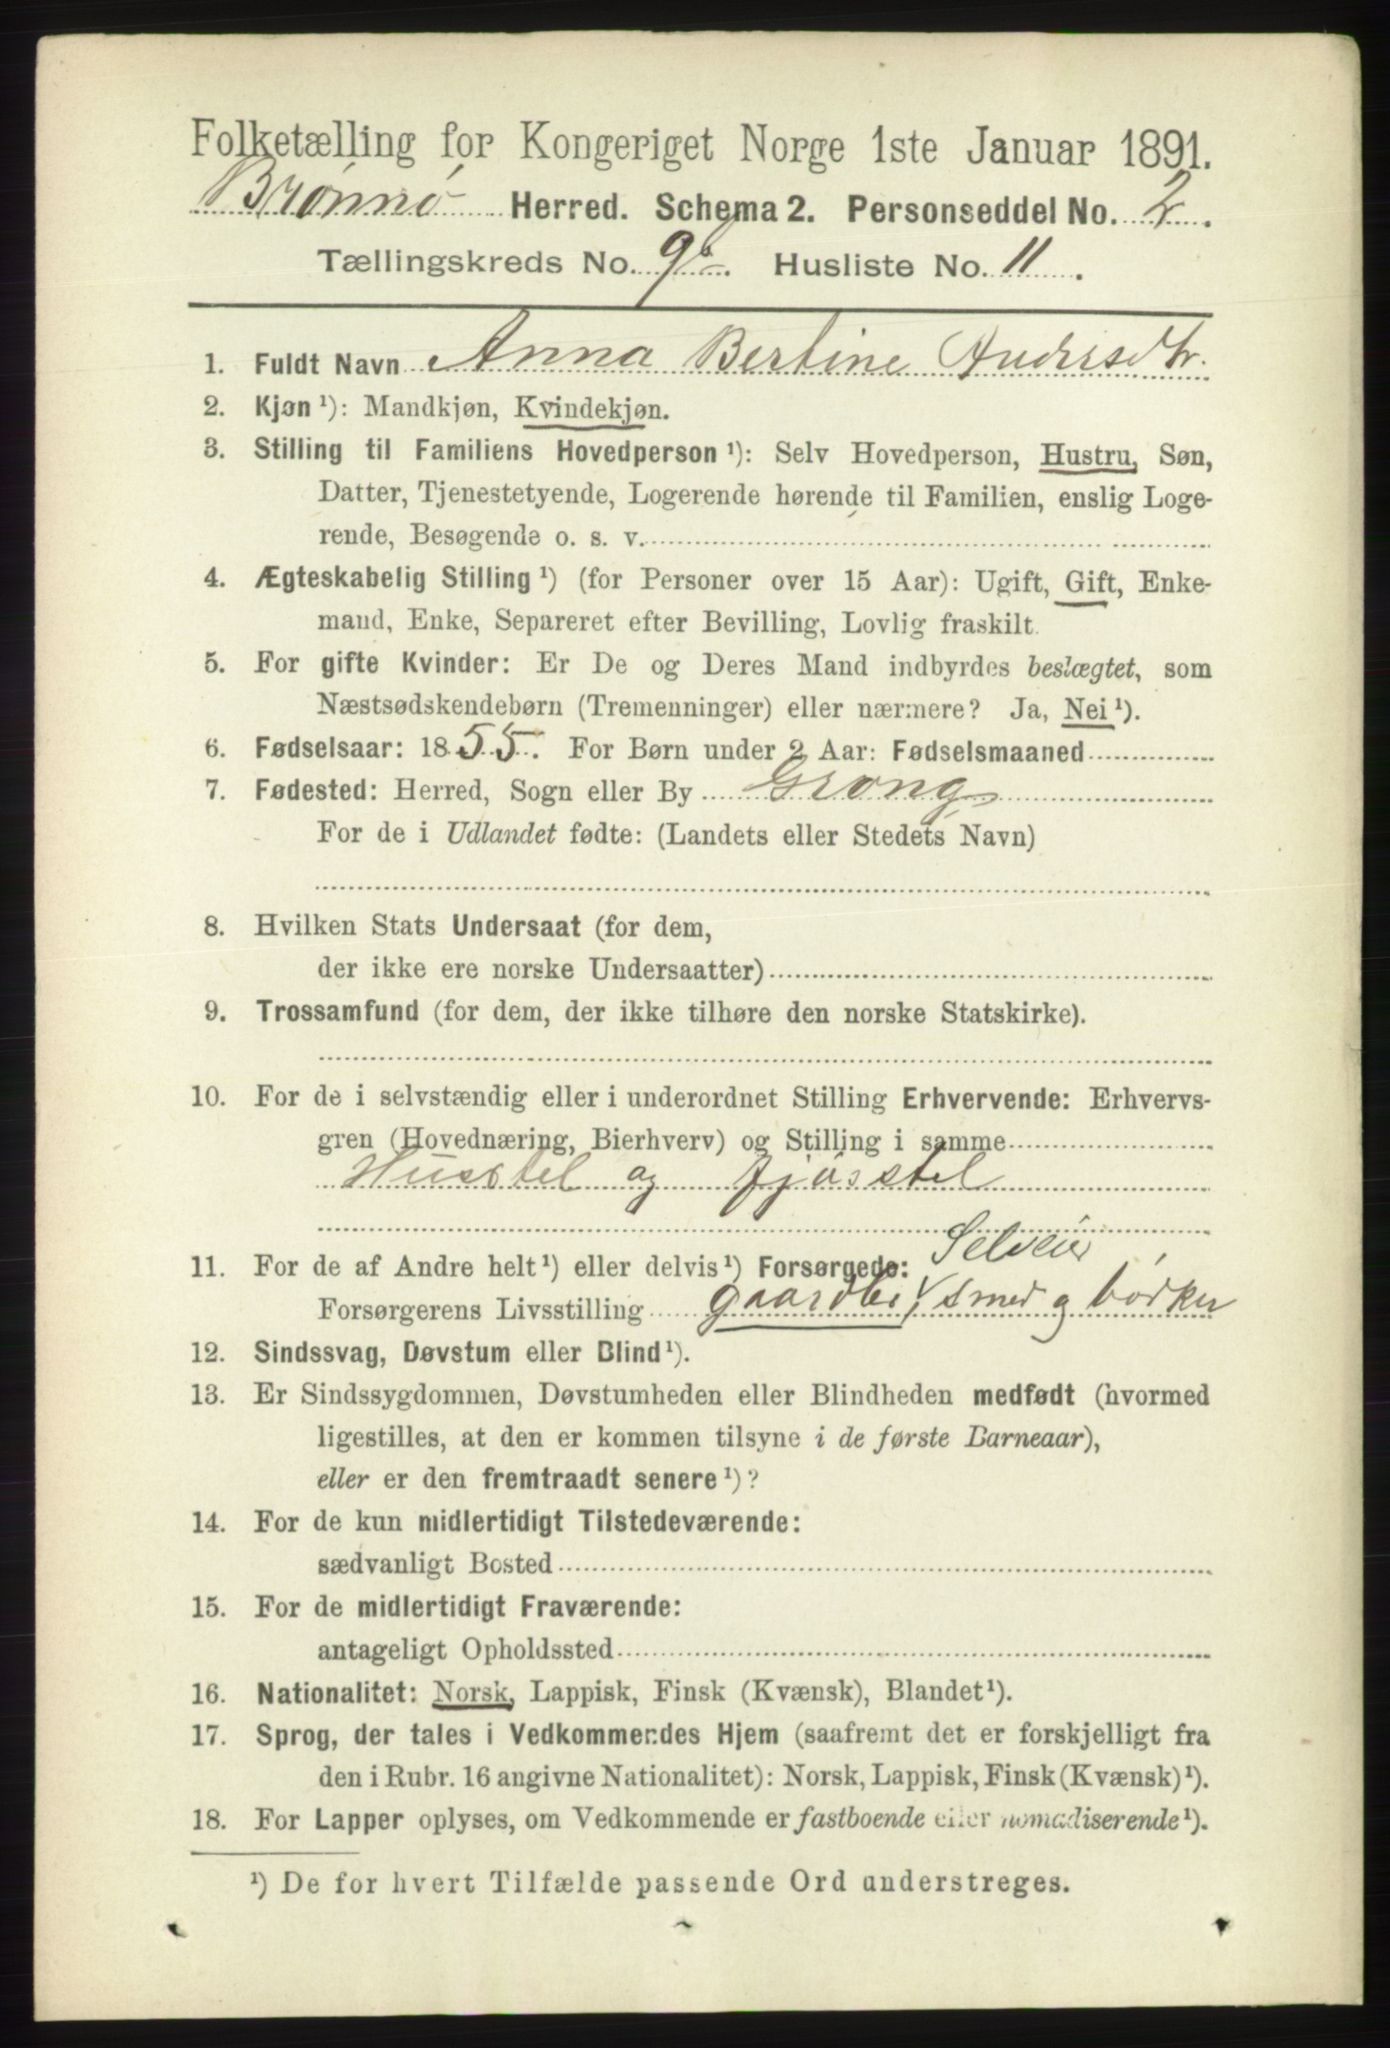 Folketælling for Kongeriget Norge 1ste Januar 1891.
Brønnø Herred. Schema 2. Personseddel No. 2.
Tællingskreds No. 9b. Husliste No. 11.
1. Fuldt Navn Anna Bertine Andersdtr.
2. Kjøn ¹): Mandkjøn, Kvindekjøn.
3. Stilling til Familiens Hovedperson ¹): Selv Hovedperson, Hustru, Søn,
Datter, Tjenestetyende, Logerende hørende til Familien, enslig Loge-
rende, Besøgende o. s. v.
4. Ægteskabelig Stilling ¹) (for Personer over 15 Aar): Ugift, Gift, Enke-
mand, Enke, Separeret efter Bevilling, Lovlig fraskilt.
5. For gifte Kvinder: Er De og Deres Mand indbyrdes beslægtet, som
Næstsødskendebørn (Tremenninger) eller nærmere? Ja, Nei ¹).
6. Fødselsaar: 1855. For Børn under 2 Aar: Fødselsmaaned
7. Fødested: Herred, Sogn eller By Grong
For de i Udlandet fødte: (Landets eller Stedets Navn)
8. Hvilken Stats Undersaat (for dem,
der ikke ere norske Undersaatter)
9. Trossamfund (for dem, der ikke tilhøre den norske Statskirke).
10. For de i selvstændig eller i underordnet Stilling Erhvervende: Erhvervs-
gren (Hovednæring, Bierhverv) og Stilling i samme
Husstel og fjøsstel
Selveier
11. For de af Andre helt ¹) eller delvis ¹) Forsørgede:
Forsørgerens Livsstilling gaardbr, smed og bødker
12. Sindssvag, Døvstum eller Blind ¹).
13. Er Sindssygdommen, Døvstumheden eller Blindheden medfødt (hvormed
ligestilles, at den er kommen tilsyne i de første Barneaar),
eller er den fremtraadt senere ¹)?
14. For de kun midlertidigt Tilstedeværende:
sædvanligt Bosted
15. For de midlertidigt Fraværende:
antageligt Opholdssted
16. Nationalitet: Norsk, Lappisk, Finsk (Kvænsk), Blandet ¹).
17. Sprog, der tales i Vedkommendes Hjem (saafremt det er forskjelligt fra
den i Rubr. 16 angivne Nationalitet): Norsk, Lappisk, Finsk (Kvænsk) ¹).
18. For Lapper oplyses, om Vedkommende er fastboende eller nomadiserende ¹).
¹) De for hvert Tilfælde passende Ord understreges.